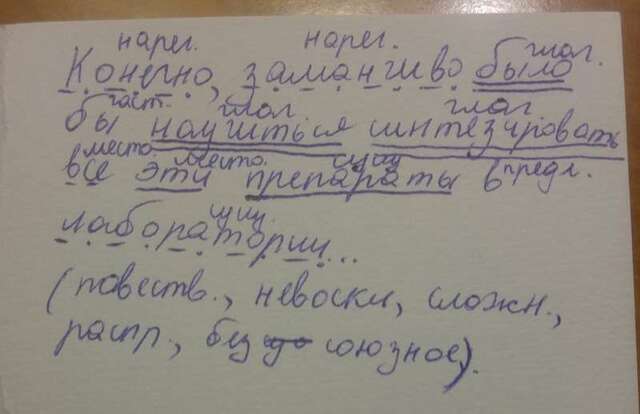 нареч. нареч. глаг.
Конечно, заманчиво было
част. глаг. глаг
бы научиться синтезировать
место место. сущ предл.
все эти препараты в
сущ.
лаборатории...
(повеств., невоскл, сложн.,
распр., без союзное).